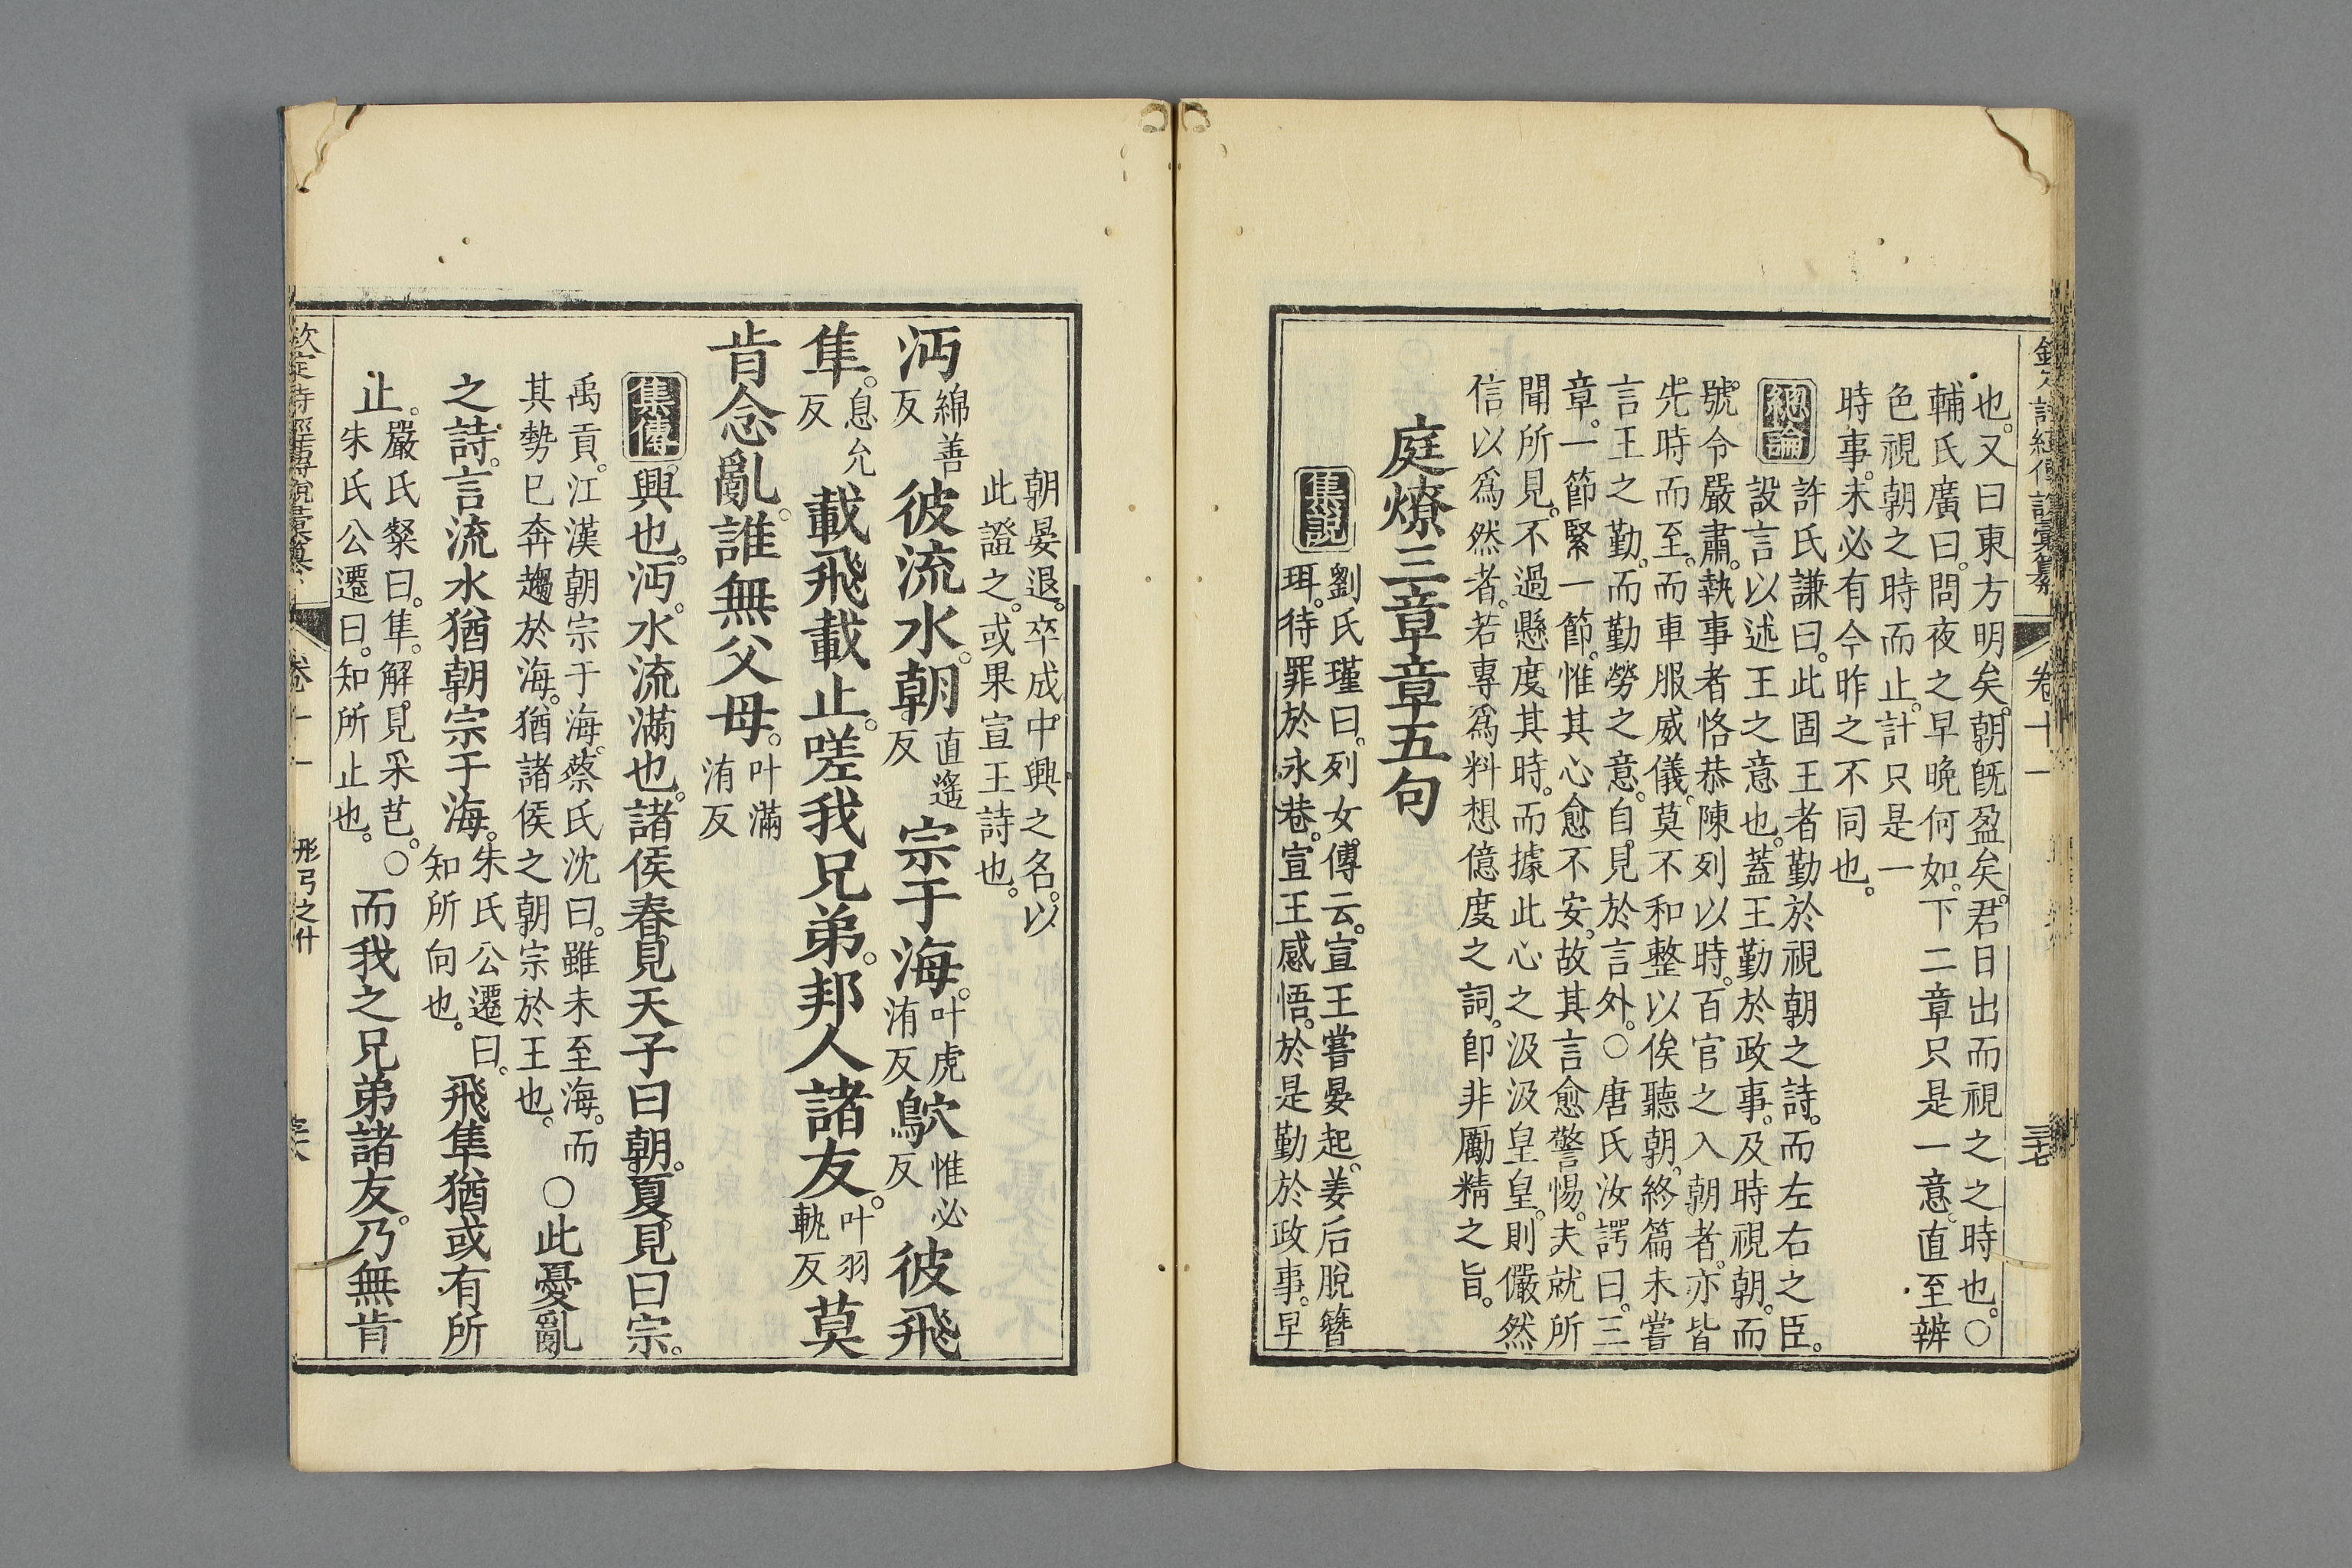 也又曰東方明矣朝旣盈矣君日出而視之之時也○
輔氏廣曰問夜之早晚何如下二章只是一意直至辨
色視朝之時而止計只是一
時事未必有今昨之不同也
總論
許氏謙曰此固王者勤於視朝之詩而左右之臣
設言以述王之意也蓋王勤於政事及時視朝而
號令嚴肅執事者恪恭陳列以時百官之入朝者亦皆
先時而至而車服威儀莫不和整以俟聽朝終篇未嘗
言王之勤而勤勞之意自見於言外○唐氏汝諤曰三
章一節緊一節惟其心愈不安故其言愈警惕夫就所
聞所見不過懸度其時而據此心之汲汲皇皇則儼然
信以爲然者若專爲料想億度之詞卽非勵精之旨
庭燎三章章五句
集說
劉氏瑾曰列女傳云宣王嘗晏起姜后脫簪
珥待罪於永巷宣王感悟於是勤於政事早
卷十一
三七
朝晏退卒成中興之名以
此證之或果宣王詩也
沔綿善反彼流水朝直遙反宗于海叶虎洧反鴥惟必反彼飛
隼息允反載飛載止嗟我兄弟邦人諸友叶羽軌反莫
肯念亂誰無父母叶滿洧反
集傳
興也沔水流滿也諸侯春見天子曰朝夏見曰宗
禹貢江漢朝宗于海蔡氏沈曰雖未至海而
其勢已奔趨於海猶諸侯之朝宗於王也
○此憂亂
之詩言流水猶朝宗于海朱氏公遷曰知所向也飛隼猶或有所
止嚴氏粲曰隼解見采芑○朱氏公遷曰知所止也而我之兄弟諸友乃無肯
欽定詩經傳說彙纂
卷十一
彤弓之什